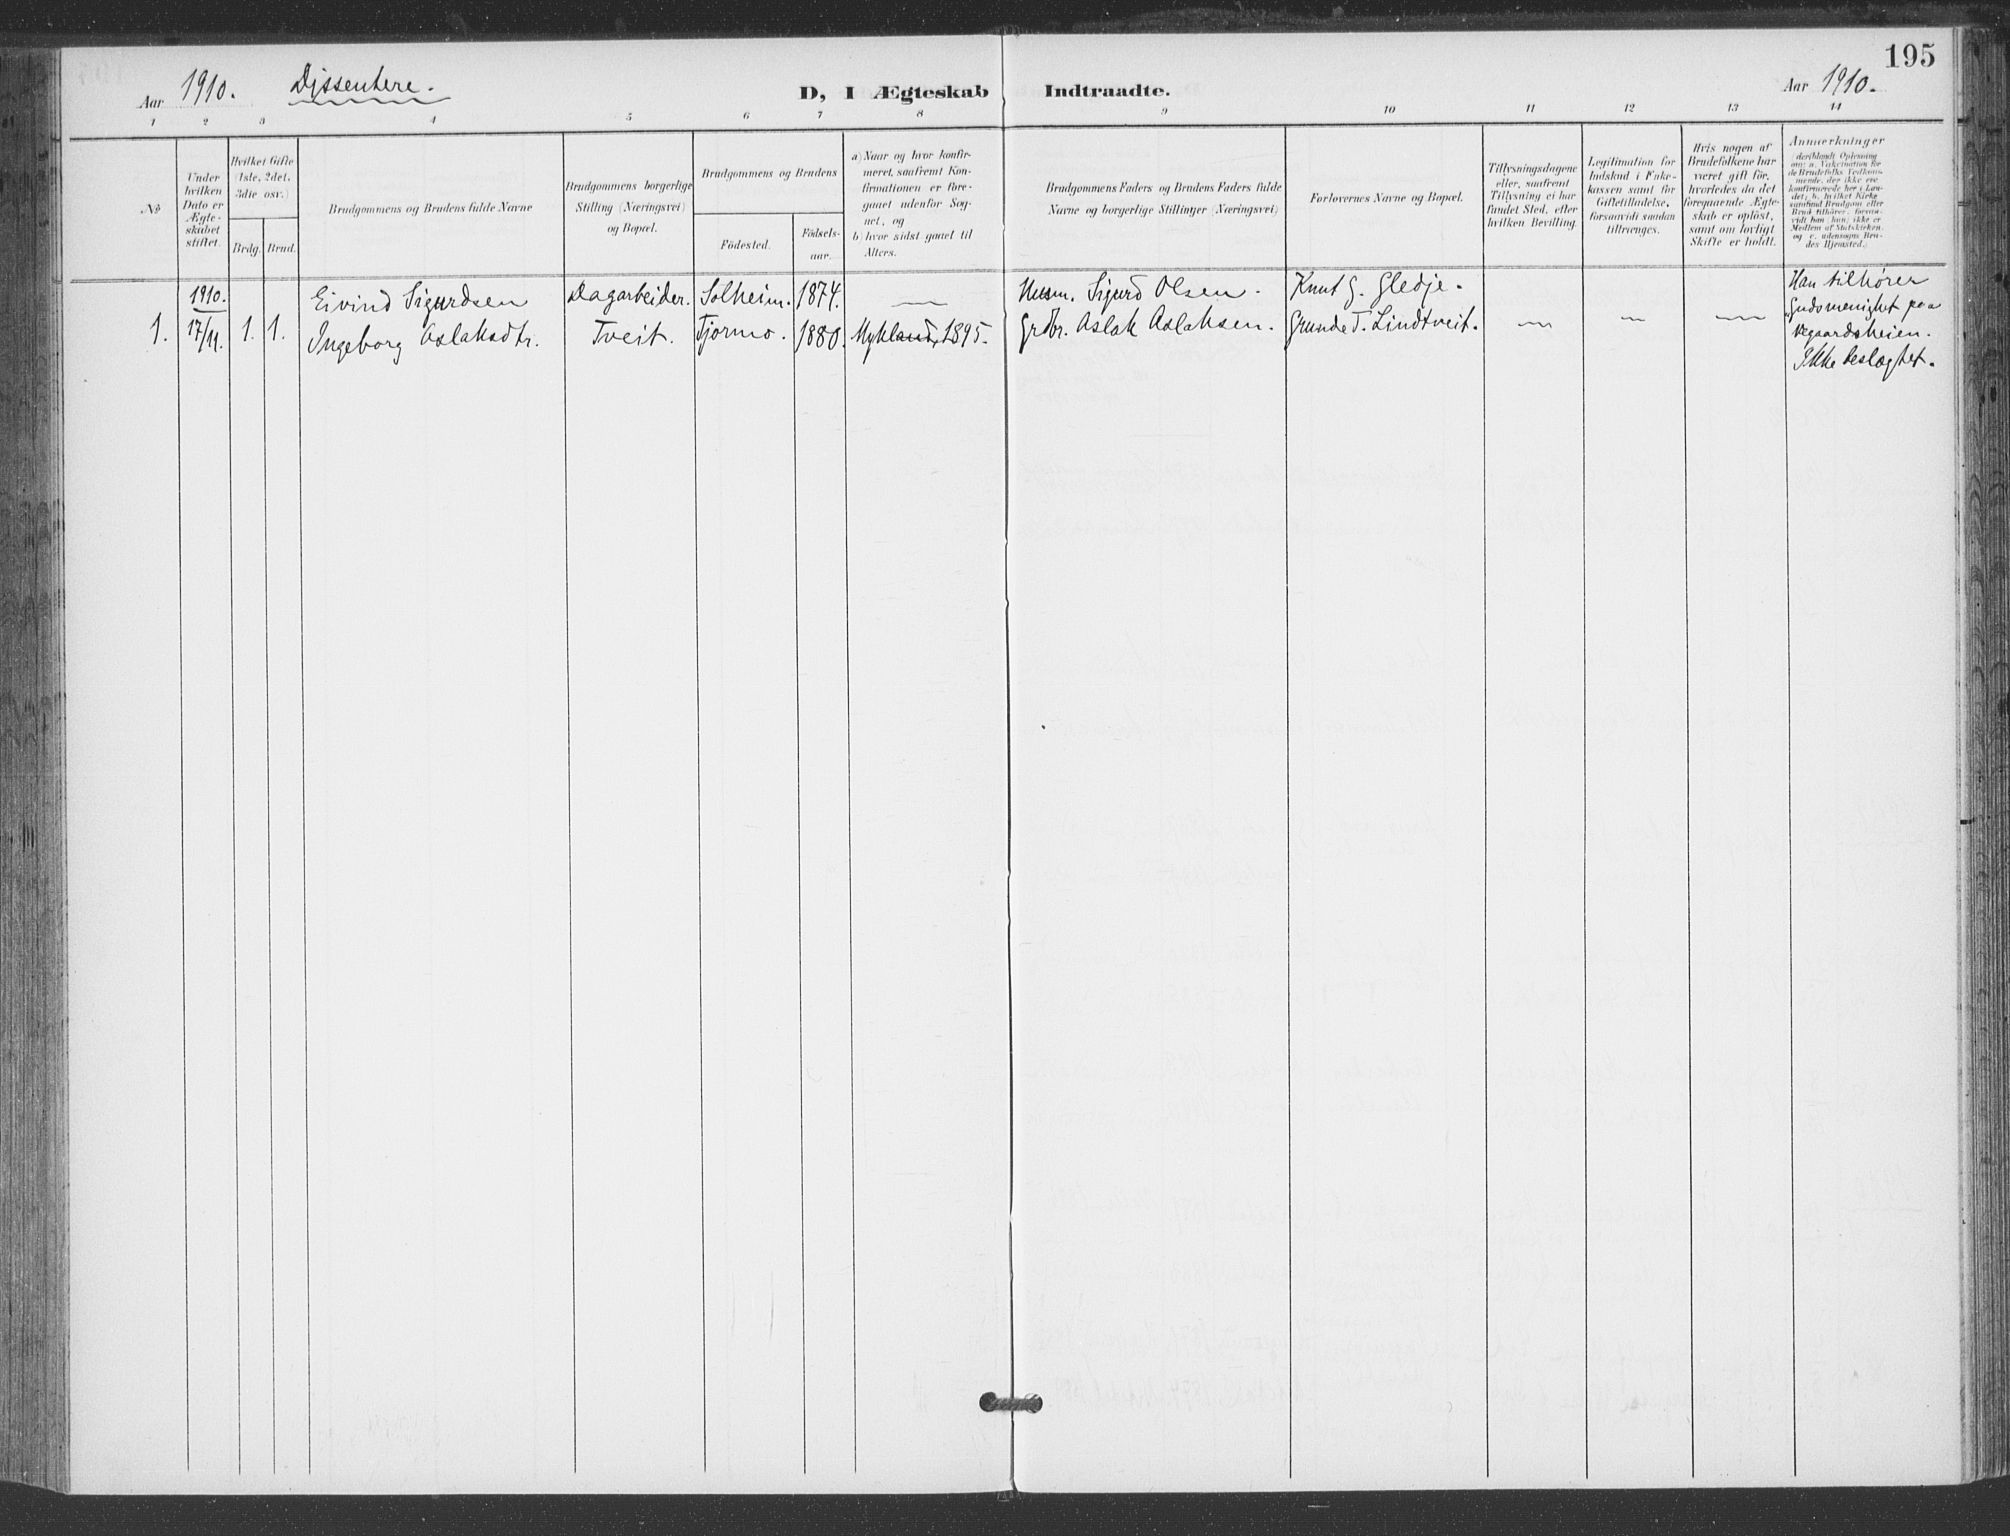 195
Aar 1910. Dissentere. D, I Ægteskab Indtraadte. Aar 1910.
1 2 3 4 5 6 7 8 9 10 11 12 13 14
No
Under
hvilken
Dato er
Ægte-
skabet
stiftet.
Hvilket Gifte
(1ste, 2det,
3die osv.)
Brdg. Brud.
Brudgommens og Brudens fulde Navne
Brudgommens borgerlige
Stilling (Næringsvei)
og Bopæl.
Brudgommens og Brudens
Fødested.
Fødsels-
aar.
a) Naar og hvor konfir-
meret, saafremt Kon-
firmationen er fore-
gaaet udenfor Sog-
net, og
b) hvor sidst gaaet til
Alters.
Brudgommens Faders og Brudens Faders fulde
Navne og borgerlige Stillinger (Næringsvei)
Forlovernes Navne og Bopæl.
Tillysningsdagene
eller, saafremt
Tillysning ei har
fundet Sted, efter
hvilken Bevilling.
Legitimation for
Indskud i Enke-
kassen samt for
Giftetilladelse,
forsaavidt saadan
tiltrænges.
Hvis nogen af
Brudefolkene har
været gift før,
hvorledes da det
foregaaende Ægte-
skab er opløst,
samt om lovligt
Skifte er holdt.
Anmærkninger
(deriblandt Oplysning
om: a. Vakcination for
de Brudefolks Vedkom-
mende, der ikke ere
konfirmerede her i Lan-
det; b. hvilket Kirke-
samfund Brudgom eller
Brud tilhører, forsaa-
vidt han/hun ikke er
Medlem af Statskirken,
og c. udensogns Bru-
des Hjemsted.)
1. 1910. 17/11. 1. 1.
Eivind Sigurdsen
Ingeborg Aslaksdtr.
Dagarbeider.
Tveit.
Solheim. 1874. —
Tjormo. 1880. Mykland, 1895.
Husm. Sigurd Olsen.
Grdbr. Aslak Aslaksen.
Knut G. Gledje.
Grunde T. Lindtveit.
— — —
Han tilhører
"Gudsmenighet paa
Vegaardsheien.
Ikke beslægtet.